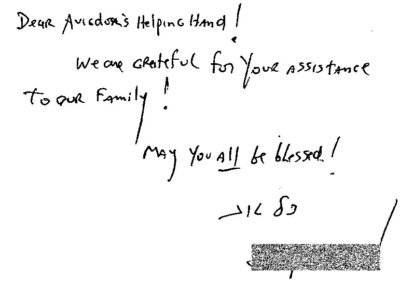 Dear Avigdor's Helping Hand!
We are grateful for your assistance
to our family!
May you all be blessed!
כל טוב